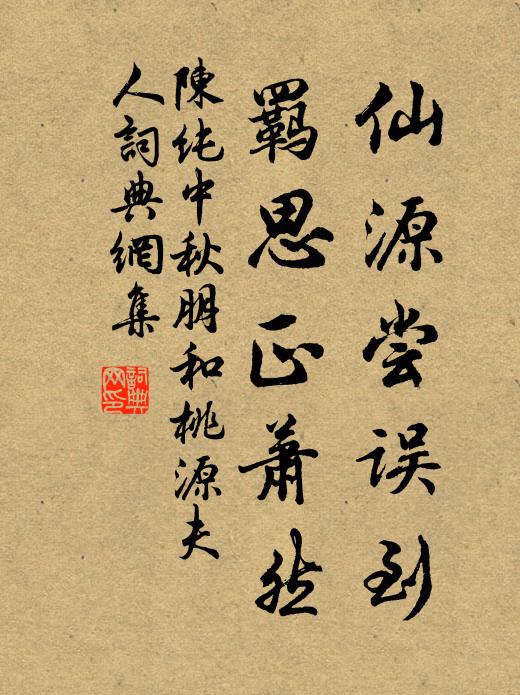 仙源尝误到
羈思正蕭然
陳純中秋朋和桃源夫
人詞典網集
詞典
网印